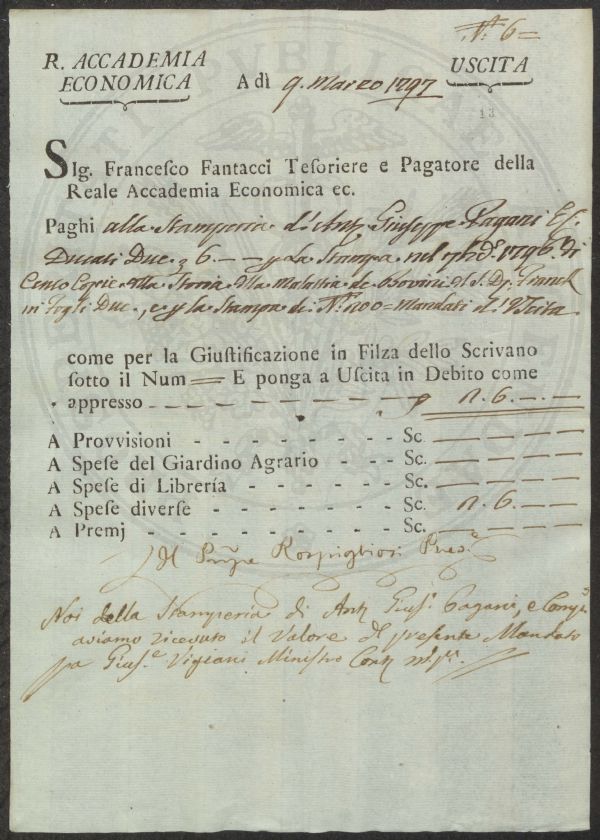 N.° 6 =
R. ACCADEMIA
ECONOMICA
A dì 9. Marzo 1797
USCITA
13
SIg. Francesco Fantacci Tesoriere e Pagatore della
Reale Accademia Economica ec.
Paghi alla Stamperia d'Ant. Giuseppe Pagani
Ducati Due 6 — — la Stampa nel 1796. di
Cento Copie della Storia della Malattia de Bovini del S. D.
in Fogli Due, e la Stampa di N.° 100 = Mandati d'Uscita
come per la Giustificazione in Filza dello Scrivano
sotto il Num = E ponga a Uscita in Debito come
appresso — — — — — — — — 6. — —
A Provvisioni - - - - - - - - Sc. — — —
A Spese del Giardino Agrario - - - - Sc. — — —
A Spese di Librería - - - - - - - Sc. — — —
A Spese diverse - - - - - - - - Sc. 6. — —
A Premj - - - - - - - - - - Sc. — — —
Rospigliosi Pres.e
Noi della Stamperia di Ant. Gius. Pagani, e Comp.
aviamo ricevuto il Valore del presente Mandato
Gius.e Vigiani Ministro